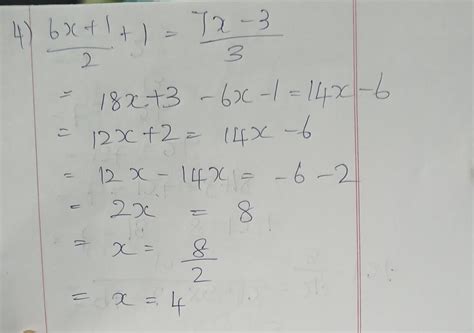 4) (6x+1)/2 + 1 = (7x-3)/3
= 18x+3 -6x-1 = 14x-6
= 12x+2 = 14x-6
= 12x-14x = -6-2
= 2x = 8
= x = 8/2
= x = 4